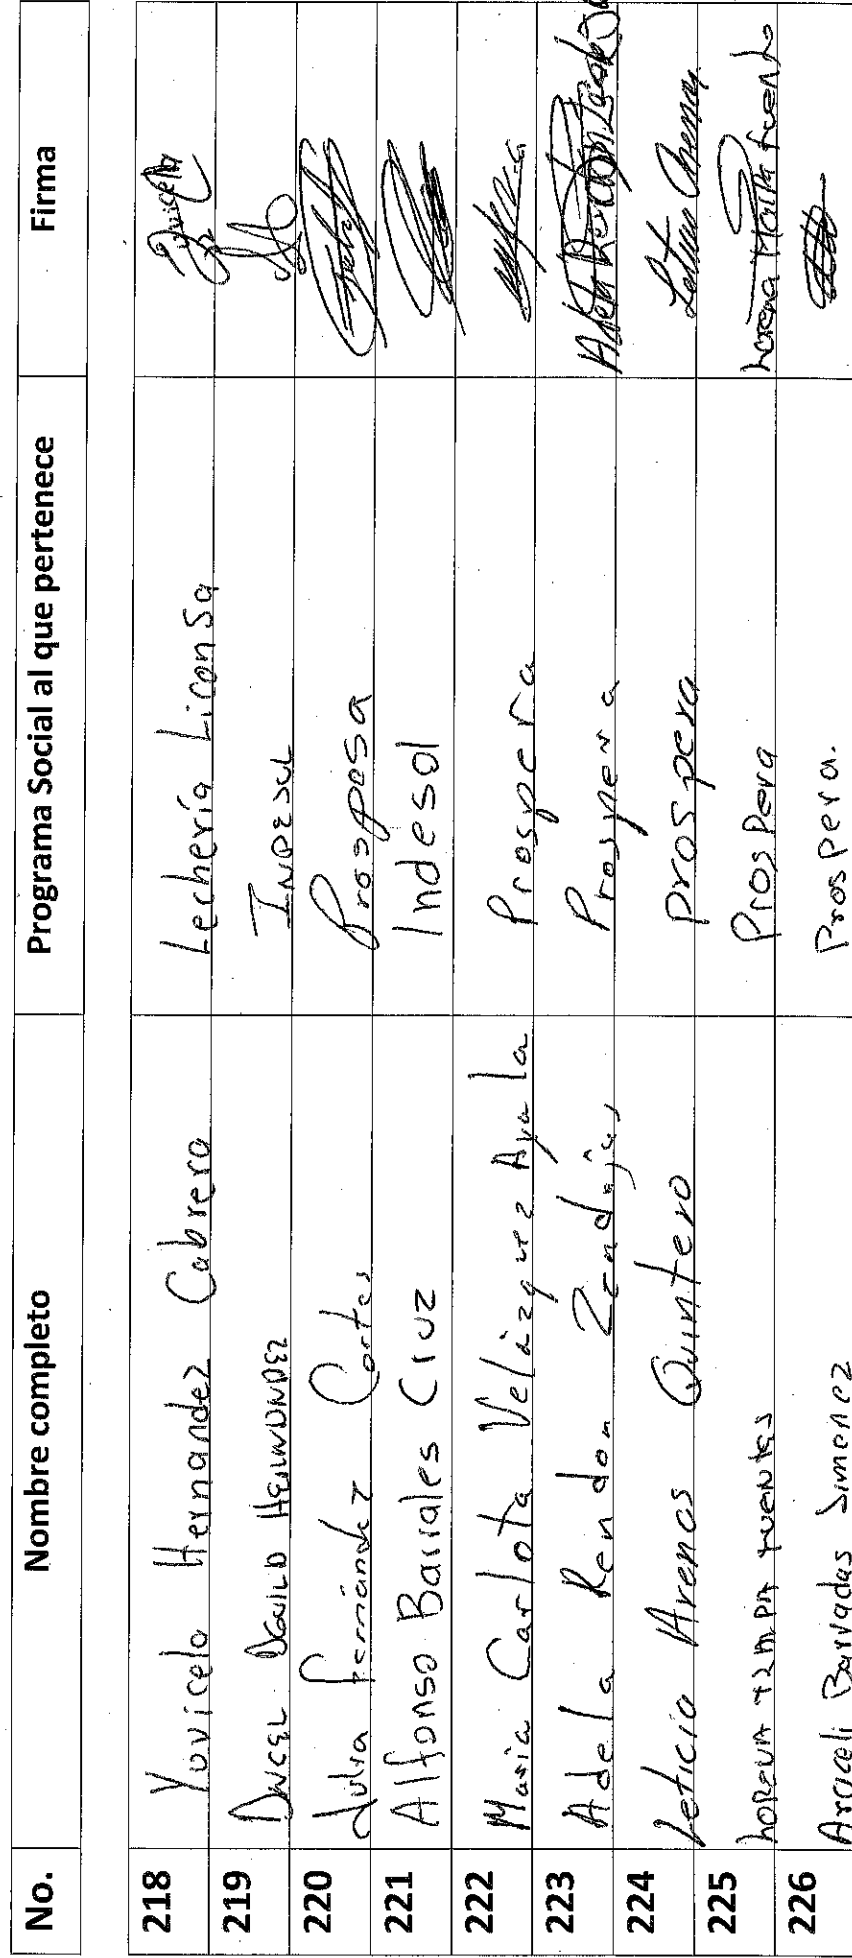 No. Nombre completo Programa Social al que pertenece Firma
218 Yuvicela Hernandez Cabrera Lechería Liconsa Yuvicela
219 David Hernandez Indesol
220 Julia Fernández Cortes Prospera
221 Alfonso Barrales Cruz Indesol
222 Maria Carlota Velázquez Ayala Prospera
223 Adela Rendon Zendejas Prospera Adela Rendon Zendejas
224 Leticia Arenas Quintero Prospera Leticia Arenas
225 Lorena Fuentes Prospera Lorena Fuentes
226 Arraceli Barradas Jimenez Prospera.